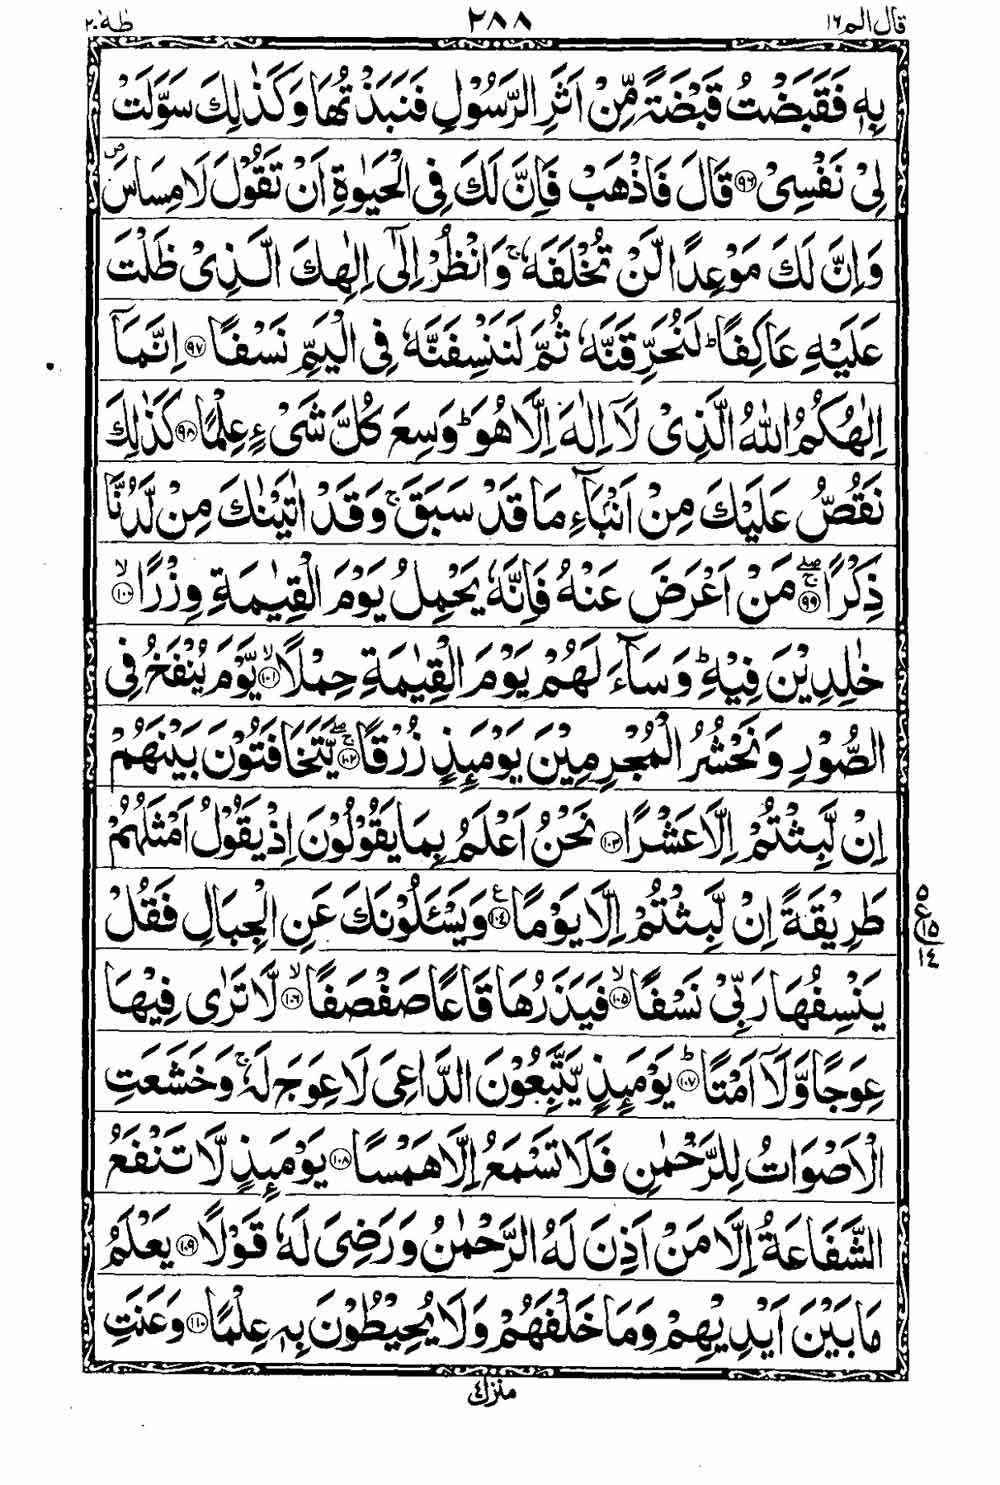 قال الم ١٦ ٢٨٨ طه ٢٠
بِهٖ فَقَبَضْتُ قَبْضَةً مِّنْ اَثَرِ الرَّسُوْلِ فَنَبَذْتُهَا وَكَذٰلِكَ سَوَّلَتْ
لِيْ نَفْسِيْ ﴿٩٦﴾ قَالَ فَاذْهَبْ فَاِنَّ لَكَ فِى الْحَيٰوةِ اَنْ تَقُوْلَ لَا مِسَاسَ ۖ
وَاِنَّ لَكَ مَوْعِدًا لَّنْ تُخْلَفَهٗ ۚ وَانْظُرْ اِلٰٓى اِلٰهِكَ الَّذِيْ ظَلْتَ
عَلَيْهِ عَاكِفًا ؕ لَنُحَرِّقَنَّهٗ ثُمَّ لَنَنْسِفَنَّهٗ فِى الْيَمِّ نَسْفًا ﴿٩٧﴾ اِنَّمَآ
اِلٰهُكُمُ اللّٰهُ الَّذِيْ لَآ اِلٰهَ اِلَّا هُوَ ؕ وَسِعَ كُلَّ شَيْءٍ عِلْمًا ﴿٩٨﴾ كَذٰلِكَ
نَقُصُّ عَلَيْكَ مِنْ اَنْۢبَآءِ مَا قَدْ سَبَقَ ۚ وَقَدْ اٰتَيْنٰكَ مِنْ لَّدُنَّا
ذِكْرًا ﴿٩٩﴾ۖۚ مَنْ اَعْرَضَ عَنْهُ فَاِنَّهٗ يَحْمِلُ يَوْمَ الْقِيٰمَةِ وِزْرًا ﴿١٠٠﴾ۙ
خٰلِدِيْنَ فِيْهِ ؕ وَسَآءَ لَهُمْ يَوْمَ الْقِيٰمَةِ حِمْلًا ﴿١٠١﴾ۙ يَّوْمَ يُنْفَخُ فِى
الصُّوْرِ وَنَحْشُرُ الْمُجْرِمِيْنَ يَوْمَئِذٍ زُرْقًا ﴿١٠٢﴾ۚۖ يَّتَخَافَتُوْنَ بَيْنَهُمْ
اِنْ لَّبِثْتُمْ اِلَّا عَشْرًا ﴿١٠٣﴾ نَحْنُ اَعْلَمُ بِمَا يَقُوْلُوْنَ اِذْ يَقُوْلُ اَمْثَلُهُمْ
طَرِيْقَةً اِنْ لَّبِثْتُمْ اِلَّا يَوْمًا ﴿١٠٤﴾ع وَيَسْـَٔلُوْنَكَ عَنِ الْجِبَالِ فَقُلْ
٥ ع ١٥ ١٤
يَنْسِفُهَا رَبِّيْ نَسْفًا ﴿١٠٥﴾ۙ فَيَذَرُهَا قَاعًا صَفْصَفًا ﴿١٠٦﴾ۙ لَّا تَرٰى فِيْهَا
عِوَجًا وَّلَآ اَمْتًا ﴿١٠٧﴾ؕ يَوْمَئِذٍ يَّتَّبِعُوْنَ الدَّاعِيَ لَا عِوَجَ لَهٗ ۚ وَخَشَعَتِ
الْاَصْوَاتُ لِلرَّحْمٰنِ فَلَا تَسْمَعُ اِلَّا هَمْسًا ﴿١٠٨﴾ يَوْمَئِذٍ لَّا تَنْفَعُ
الشَّفَاعَةُ اِلَّا مَنْ اَذِنَ لَهُ الرَّحْمٰنُ وَرَضِيَ لَهٗ قَوْلًا ﴿١٠٩﴾ يَعْلَمُ
مَا بَيْنَ اَيْدِيْهِمْ وَمَا خَلْفَهُمْ وَلَا يُحِيْطُوْنَ بِهٖ عِلْمًا ﴿١١٠﴾ وَعَنَتِ
منزل ٤